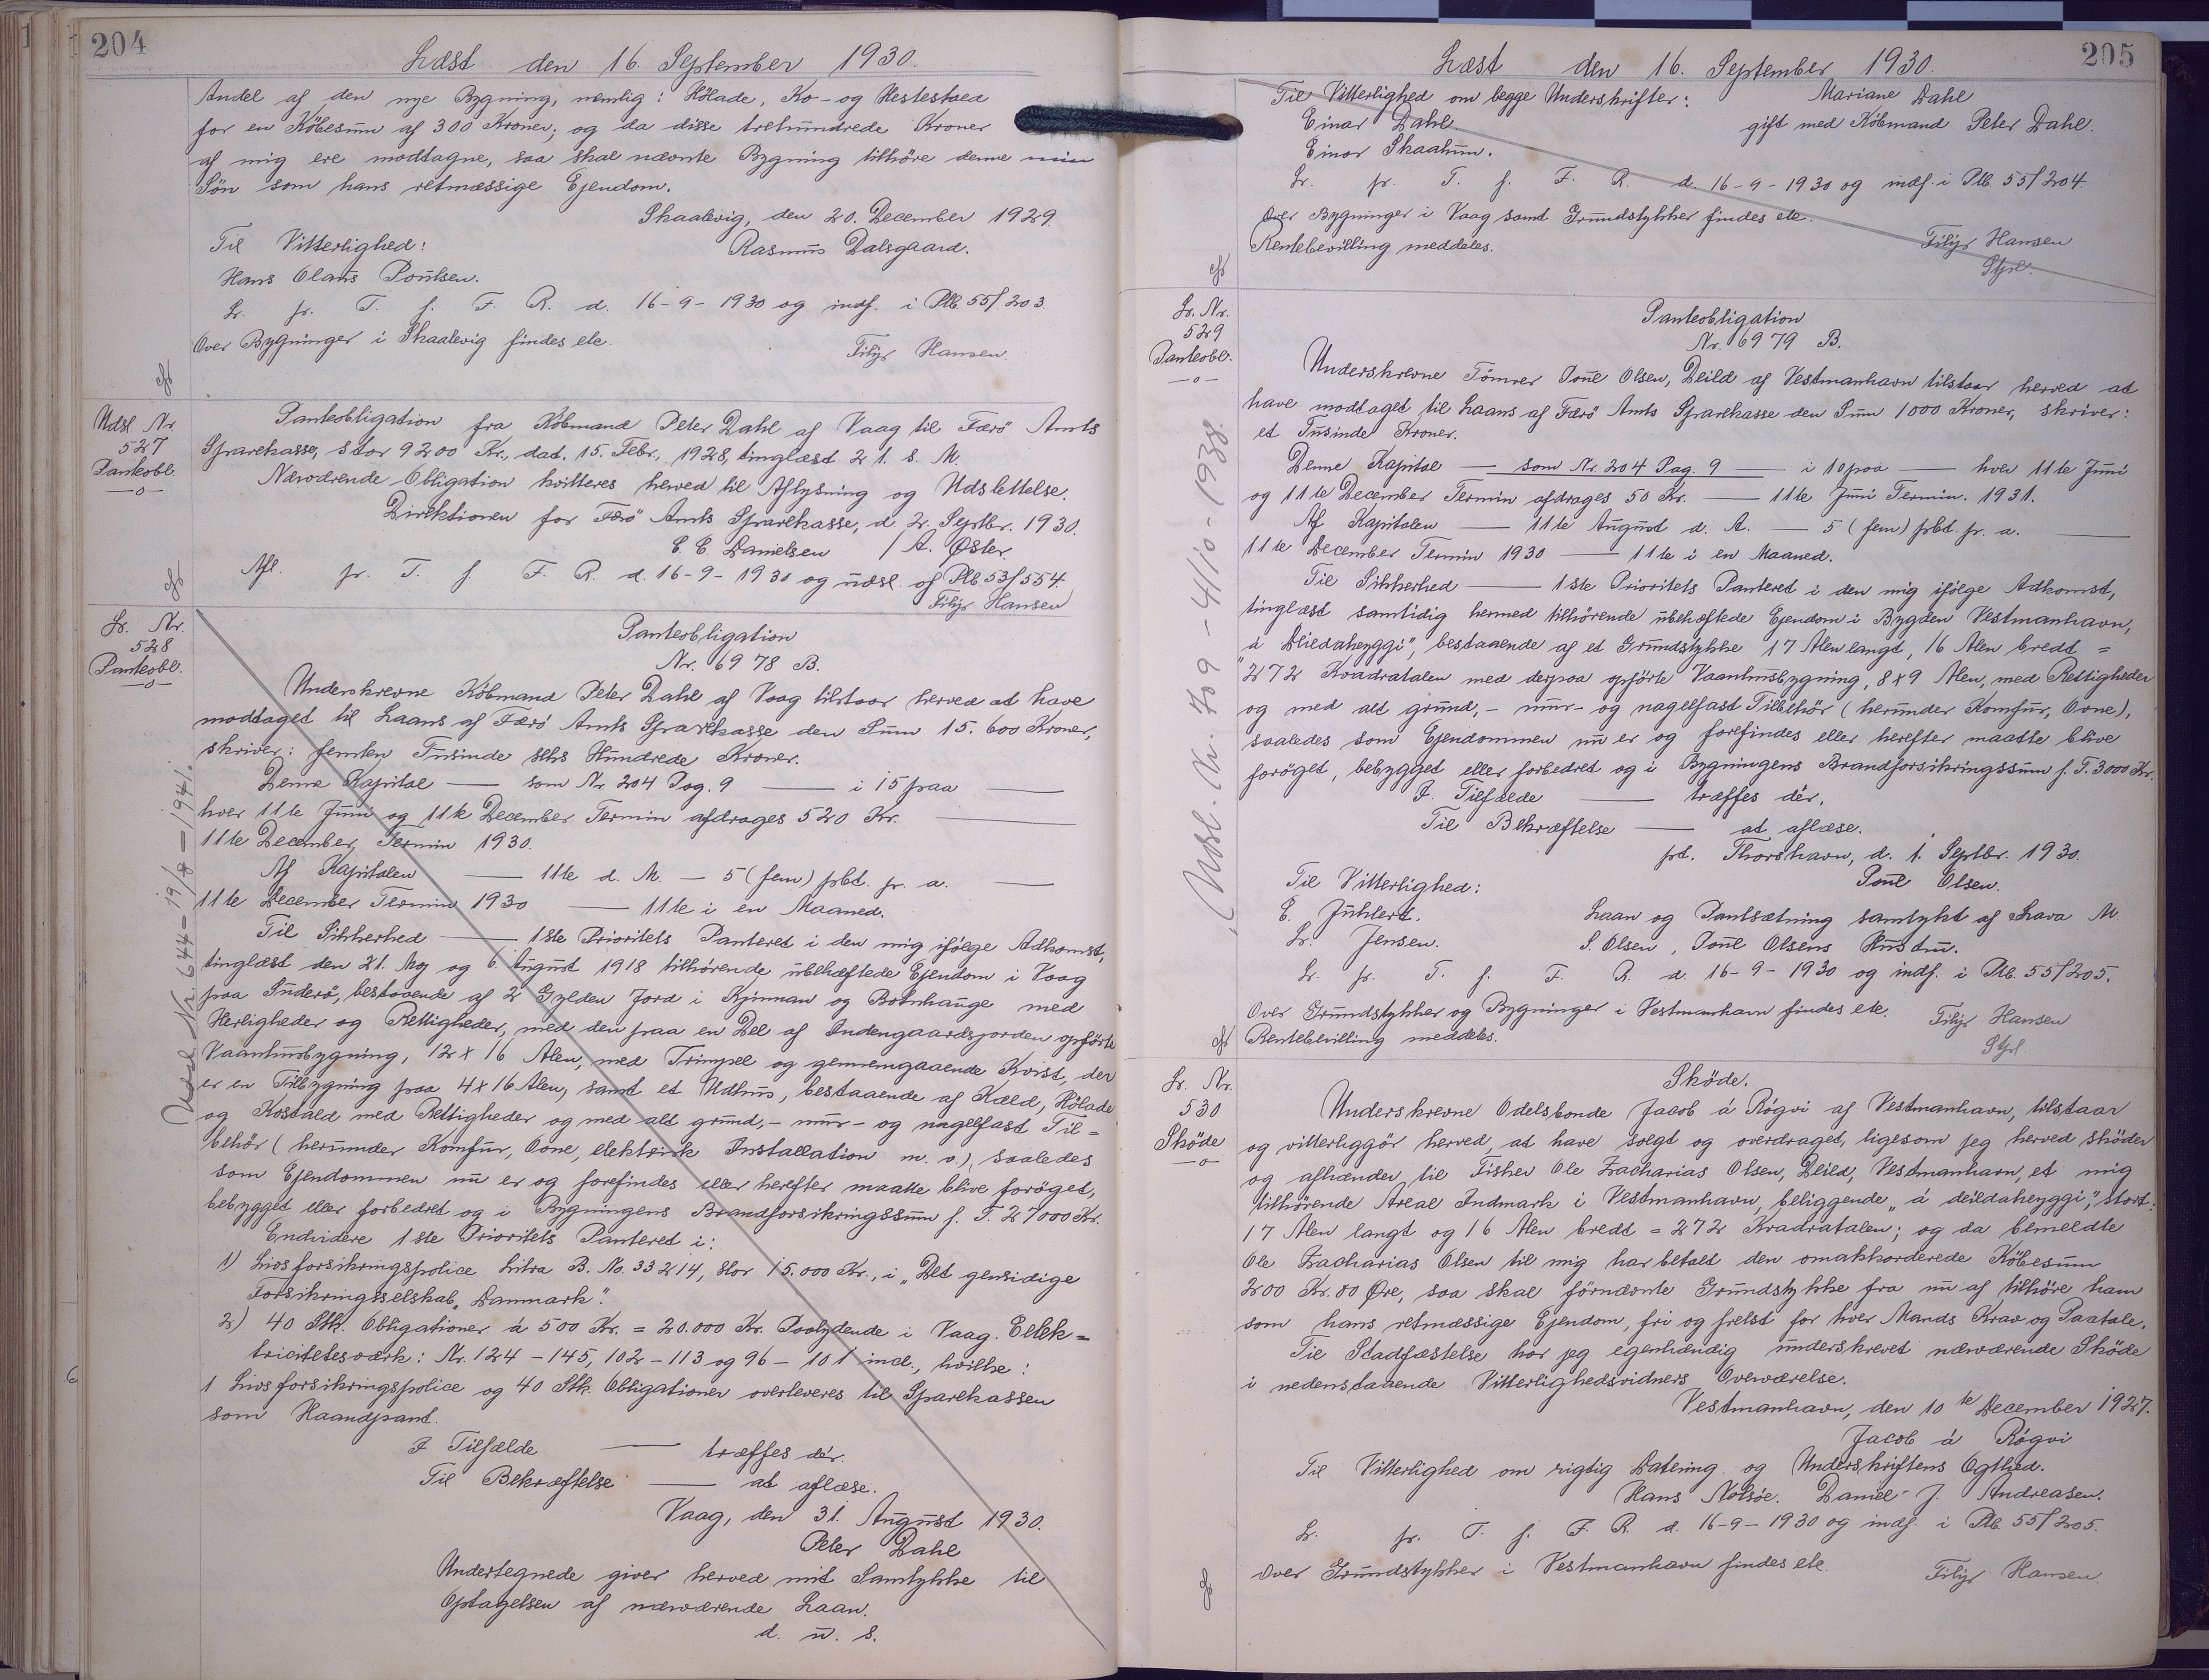 204
Læst den 16. September 1930.
Andel af den nye Bygning, nemlig: Hölade, Ko- og Hestestald
for en Köbesum af 300 Kroner; og da disse trehundrede Kroner
af mig ere modtagne, saa skal nævnte Bygning tilhöre denne min
Sön som hans retmæssige Ejendom.
Skaalevig, den 20. December 1929.
Til Vitterlighed: Rasmus Dalsgaard.
Hans Olaus Poulsen.
Lr. pr. T. f. F. R. d. 16-9-1930 og indf. i Ptb. 55/203.
Over Bygninger i Skaalevig findes ete.
Filip Hansen
Udsl. Nr.
527
Panteobl.
—o—
Panteobligation fra Köbmand Peter Dahl af Vaag til Færö Amts
Sparekasse, stor 9200 Kr., dat. 15. Febr., 1928, tinglæst 21. s. M.
Nærværende Obligation kvitteres herved til Aflysning og Udslettelse.
Direktionen for Færö Amts Sparekasse, d. 2. Septbr. 1930.
C. C. Danielsen / A. Øster.
Afl. pr. T. f. F. R. d. 16-9-1930 og udsl. af Ptb 53/554.
Filip Hansen
Lr. Nr.
528
Panteobl.
—o—
Panteobligation
Nr. 6978 B.
Underskrevne Köbmand Peter Dahl af Vaag tilstaar herved at have
modtaget til Laans af Færö Amts Sparekasse den Sum 15.600 Kroner,
skriver: femten Tusinde seks Hundrede Kroner.
Denne Kapital — som Nr. 204 Pag. 9 — i 15 paa —
hver 11te Juni og 11te December Termin afdrages 520 Kr. —
11te December Termin 1930.
Af Kapitalen — 11te d. M. — 5 (fem) pCt. pr. a. —
11te December Termin 1930 — 11te i en Maaned.
Til Sikkerhed — 1ste Prioritets Panteret i den mig ifölge Adkomst,
tinglæst den 21. Maj og 6. August 1918 tilhörende ubehæftede Ejendom i Vaag
paa Suderö, bestaaende af 2 Gylden Jord i Kjinnan og Botnhauge med
Herligheder og Rettigheder, med den paa en Del af Indengaardsjorden opförte
Vaanhusbygning, 12 x 16 Alen, med Trempel og gennemgaaende Kvist, der
er en Tilbygning paa 4 x 16 Alen, samt et Udhus, bestaaende af Kæld, Hölade
og Kostald med Rettigheder og med alt grund,- mur- og nagelfast Til=
behör (herunder Komfur, Ovne, elektrisk Installation m. v.), saaledes
som Ejendommen nu er og forefindes eller herefter maatte blive foröget,
bebygget eller forbedret og i Bygningens Brandforsikringssum f. T. 27000 Kr.
Endvidere 1ste Prioritets Panteret i:
1) Livsforsikringspolice Litra B. No. 33214, stor 15.000 Kr., i „Det gensidige
Forsikringsselskab „Danmark".
2) 40 Stk. Obligationer á 500 Kr. = 20.000 Kr. Paalydende i Vaag. Elek=
tricitetsværk: Nr. 124-145, 102-113 og 96-101 incl., hvilke:
1 Livsforsikringspolice og 40 Stk. Obligationer overleveres til Sparekassen
som Haandpant.
I Tilfælde — træffes dér.
Til Bekræftelse — at aflæse.
Vaag, den 31. August 1930.
Peter Dahl
Undertegnede giver herved mit Samtykke til
Optagelsen af nærværende Laan.
d. u. s.
Udsl. Nr. 644 - 19/8 - 1941.
205
Læst den 16. September 1930.
Til Vitterlighed om begge Underskrifter: Mariane Dahl
Einar Dahl. gift med Köbmand Peter Dahl.
Einar Skaalum.
Lr. pr. T. f. F. R. d. 16-9-1930 og indf. i Ptb. 55/204.
Over Bygninger i Vaag samt Grundstykker findes ete.
Rentebevilling meddeles. Filip Hansen
Stpl.
Lr. Nr.
529
Panteobl.
—o—
Panteobligation
Nr. 6979 B.
Underskrevne Tömrer Poul Olsen, Deild af Vestmanhavn tilstaar herved at
have modtaget til Laans af Færö Amts Sparekasse den Sum 1000 Kroner, skriver:
et Tusinde Kroner.
Denne Kapital — som Nr. 204 Pag. 9 — i 10 paa — hver 11te Juni
og 11te December Termin afdrages 50 Kr. — 11te Juni Termin. 1931.
Af Kapitalen — 11te August d. A. — 5 (fem) pCt. pr. a. —
11te December Termin 1930 — 11te i en Maaned.
Til Sikkerhed — 1ste Prioritets Panteret i den mig ifölge Adkomst,
tinglæst samtidig hermed tilhörende ubehæftede Ejendom i Bygden Vestmanhavn,
„á Deildaheyggi", bestaaende af et Grundstykke 17 Alen langt, 16 Alen bredt =
272 Kvadratalen med derpaa opförte Vaanhusbygning, 8 x 9 Alen, med Rettigheder
og med alt grund,- mur- og nagelfast Tilbehör (herunder Komfur, Ovne),
saaledes som Ejendommen nu er og forefindes eller herefter maatte blive
foröget, bebygget eller forbedret og i Bygningens Brandforsikringssum f. T. 3000 Kr.
I Tilfælde — træffes dér.
Til Bekræftelse — at aflæse.
pt. Thorshavn, d. 1. Septbr. 1930.
Til Vitterlighed: Poul Olsen.
E. Juhlert. Laan og Pantsætning samtykt af Lava M.
Lr. Jensen. S. Olsen, Poul Olsens Hustru.
Lr. pr. T. f. F. R. d. 16-9-1930 og indf. i Ptb. 55/205.
Over Grundstykker og Bygninger i Vestmanhavn findes ete. Filip Hansen
Rentebevilling meddeles. Stpl
Udsl. Nr. 709 - 4/10 - 1938.
Lr. Nr.
530
Sköde
—o—
Sköde.
Underskrevne Odelsbonde Jacob á Rógvi af Vestmanhavn, tilstaar
og vitterliggör herved, at have solgt og overdraget, ligesom jeg herved sköder
og afhænder til Fisker Ole Zacharias Olsen, Deild, Vestmanhavn, et mig
tilhörende Areal Indmark i Vestmanhavn, beliggende „á deildaheyggi", stort:
17 Alen langt og 16 Alen bredt = 272 Kvadratalen; og da bemeldte
Ole Zacharias Olsen til mig har betalt den omakkorderede Köbesum
200 Kr. 00 Øre, saa skal förnævnte Grundstykke fra nu af tilhöre ham
som hans retmæssige Ejendom, fri og frelst for hver Mands Krav og Paatale.
Til Stadfæstelse har jeg egenhændig underskrevet nærværende Sköde
i nedenstaaende Vitterlighedsvidners Overværelse.
Vestmanhavn, den 10te December 1927.
Jacob á Rógvi
Til Vitterlighed om rigtig Datering og Underskriftens Ægthed.
Hans Nolsöe. Daniel J. Andreasen.
Lr. pr. T. f. F. R. d. 16-9-1930 og indf. i Ptb. 55/205.
Over Grundstykker i Vestmanhavn findes ete. Filip Hansen.